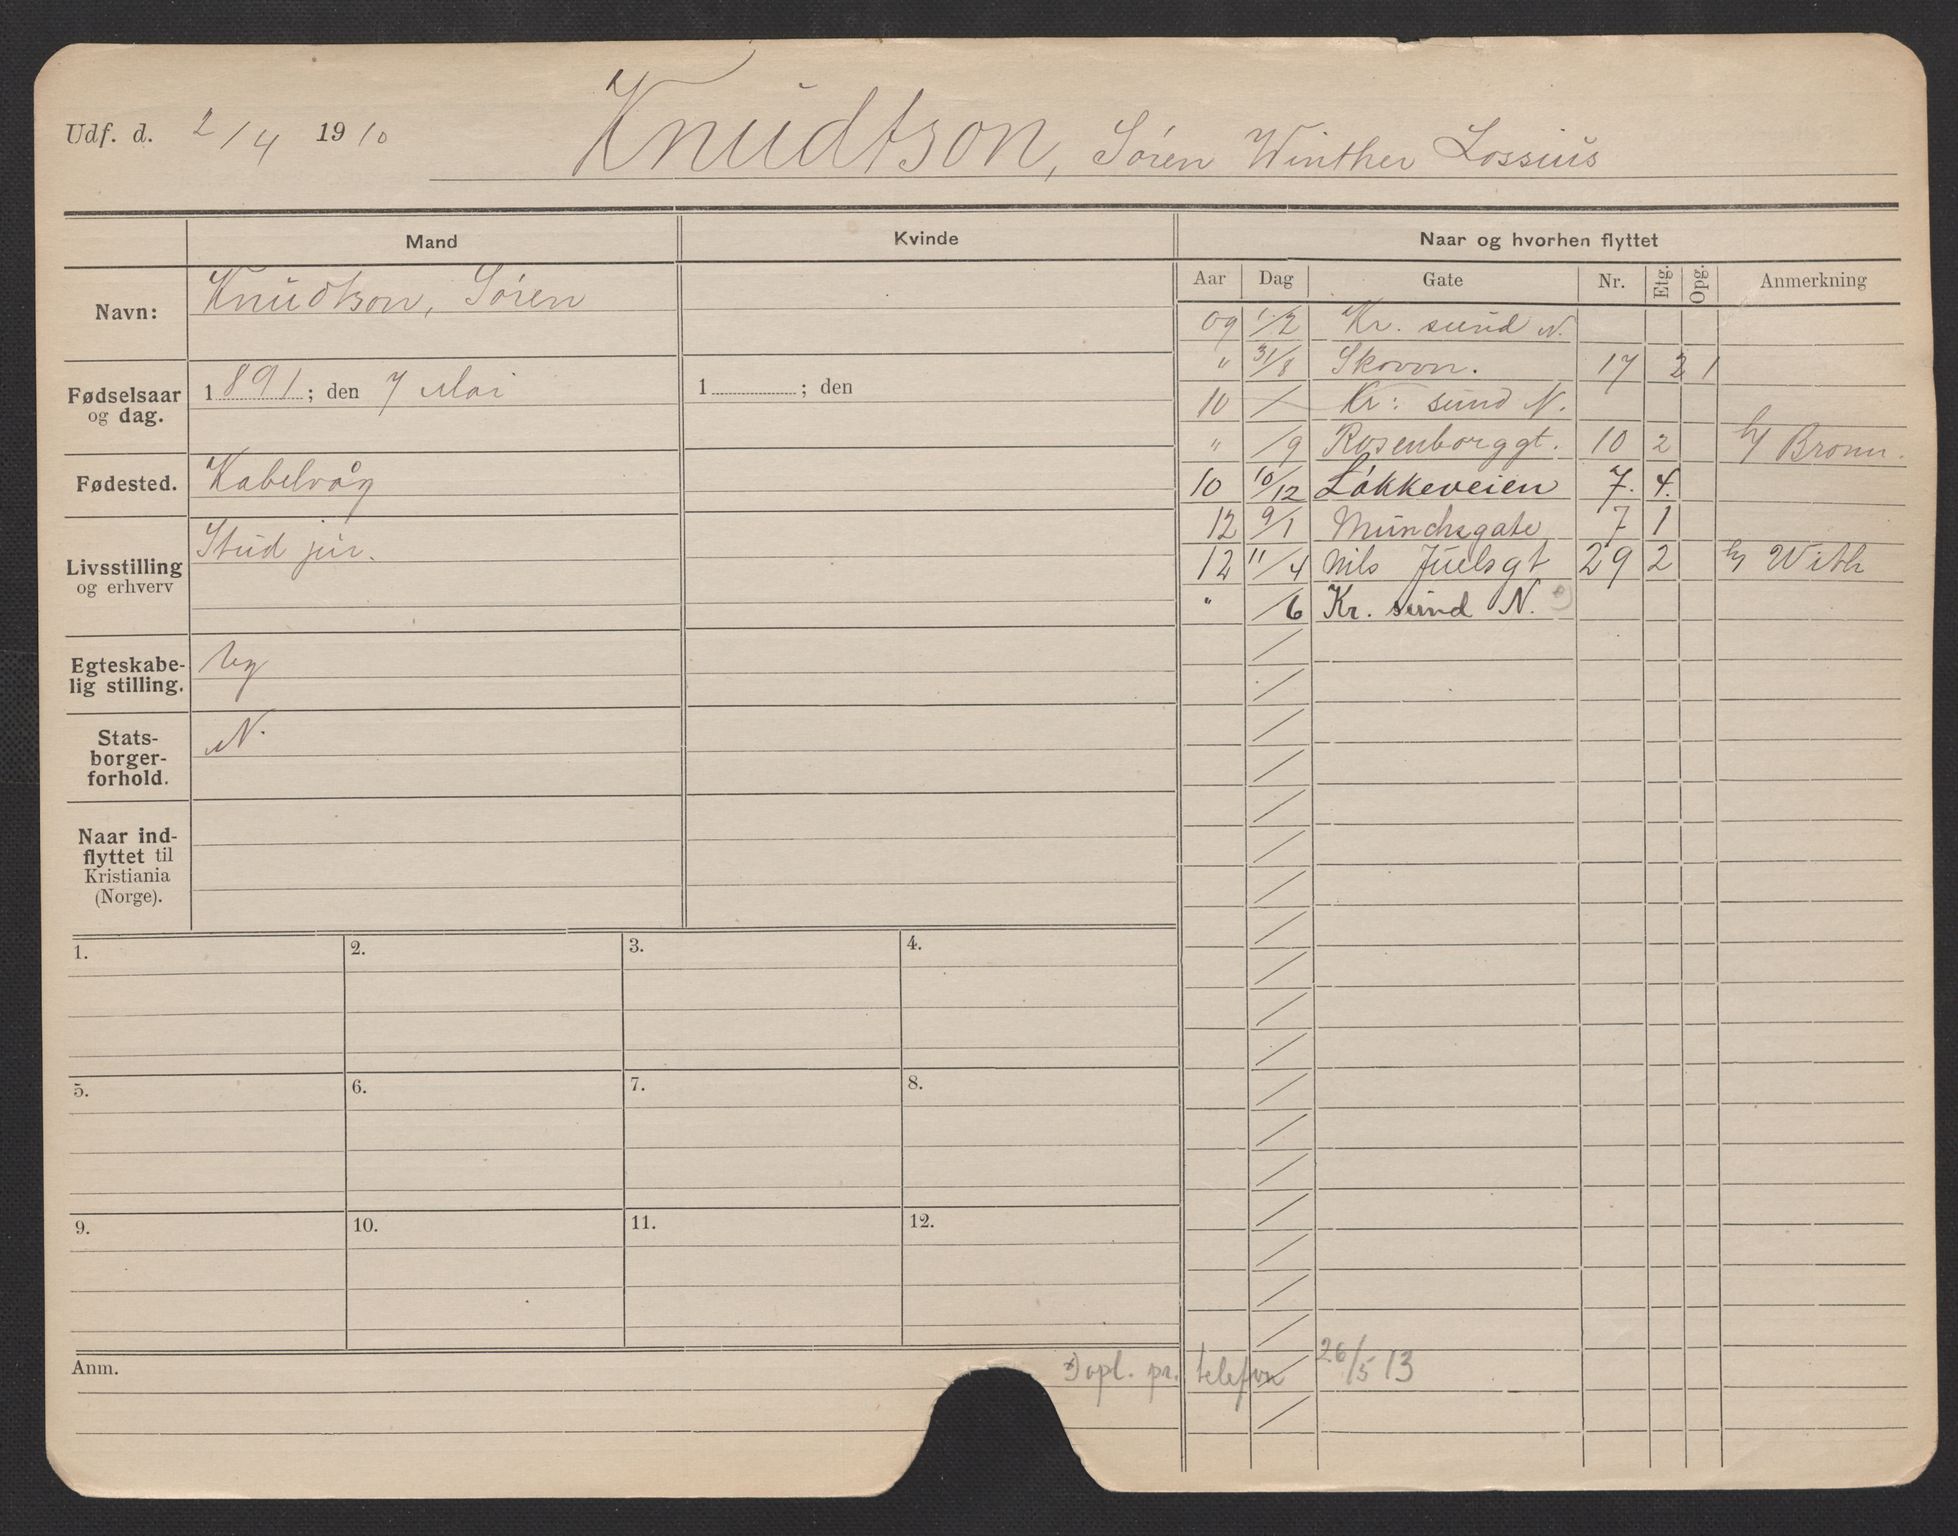 Udf. d. 2/4 1910 Knudtson, Søren Winther Lossius
Mand Kvinde Naar og hvorhen flyttet
Aar Dag Gate Nr. Etg. Opg. Anmerkning
Navn: Knudtson, Søren
Fødselsaar og dag. 1891; den 7 Mai 1 ; den
Fødested. Kabelvåg
Livsstilling og erhverv Stud jur.
Egteskabelig stilling. Ug
Statsborgerforhold. N.
Naar indflyttet til Kristiania (Norge).
09 1/2 Kr. sund N.
" 31/8 Skovvn. 17 2 1
10 / Kr: sund N.
" /9 Rosenborggt. 10 2 h/
10 10/12 Løkkeveien 7. 4.
12 9/1 Munchsgate 7 1
12 11/4 Nils Juelsgt 29 2 h/ With
" /6 Kr. sund N. *)
1. 2. 3. 4.
5. 6. 7. 8.
9. 10. 11. 12.
Anm.
*) opl. pr. telefon 26/5 13